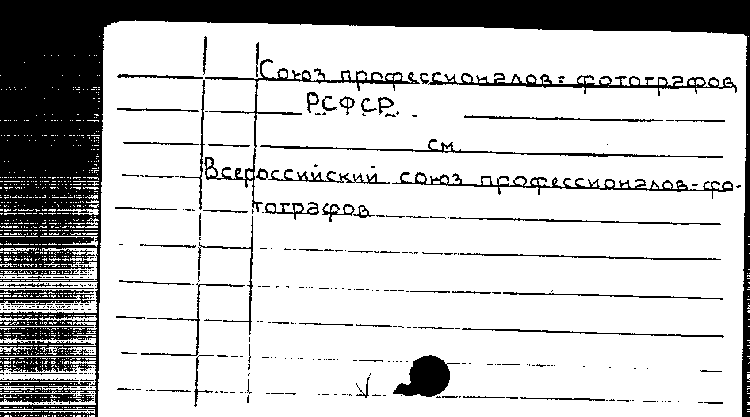 Союз профессионалов-фотографов
РСФСР.
см.
Всероссийский союз профессионалов-фо-
тографов